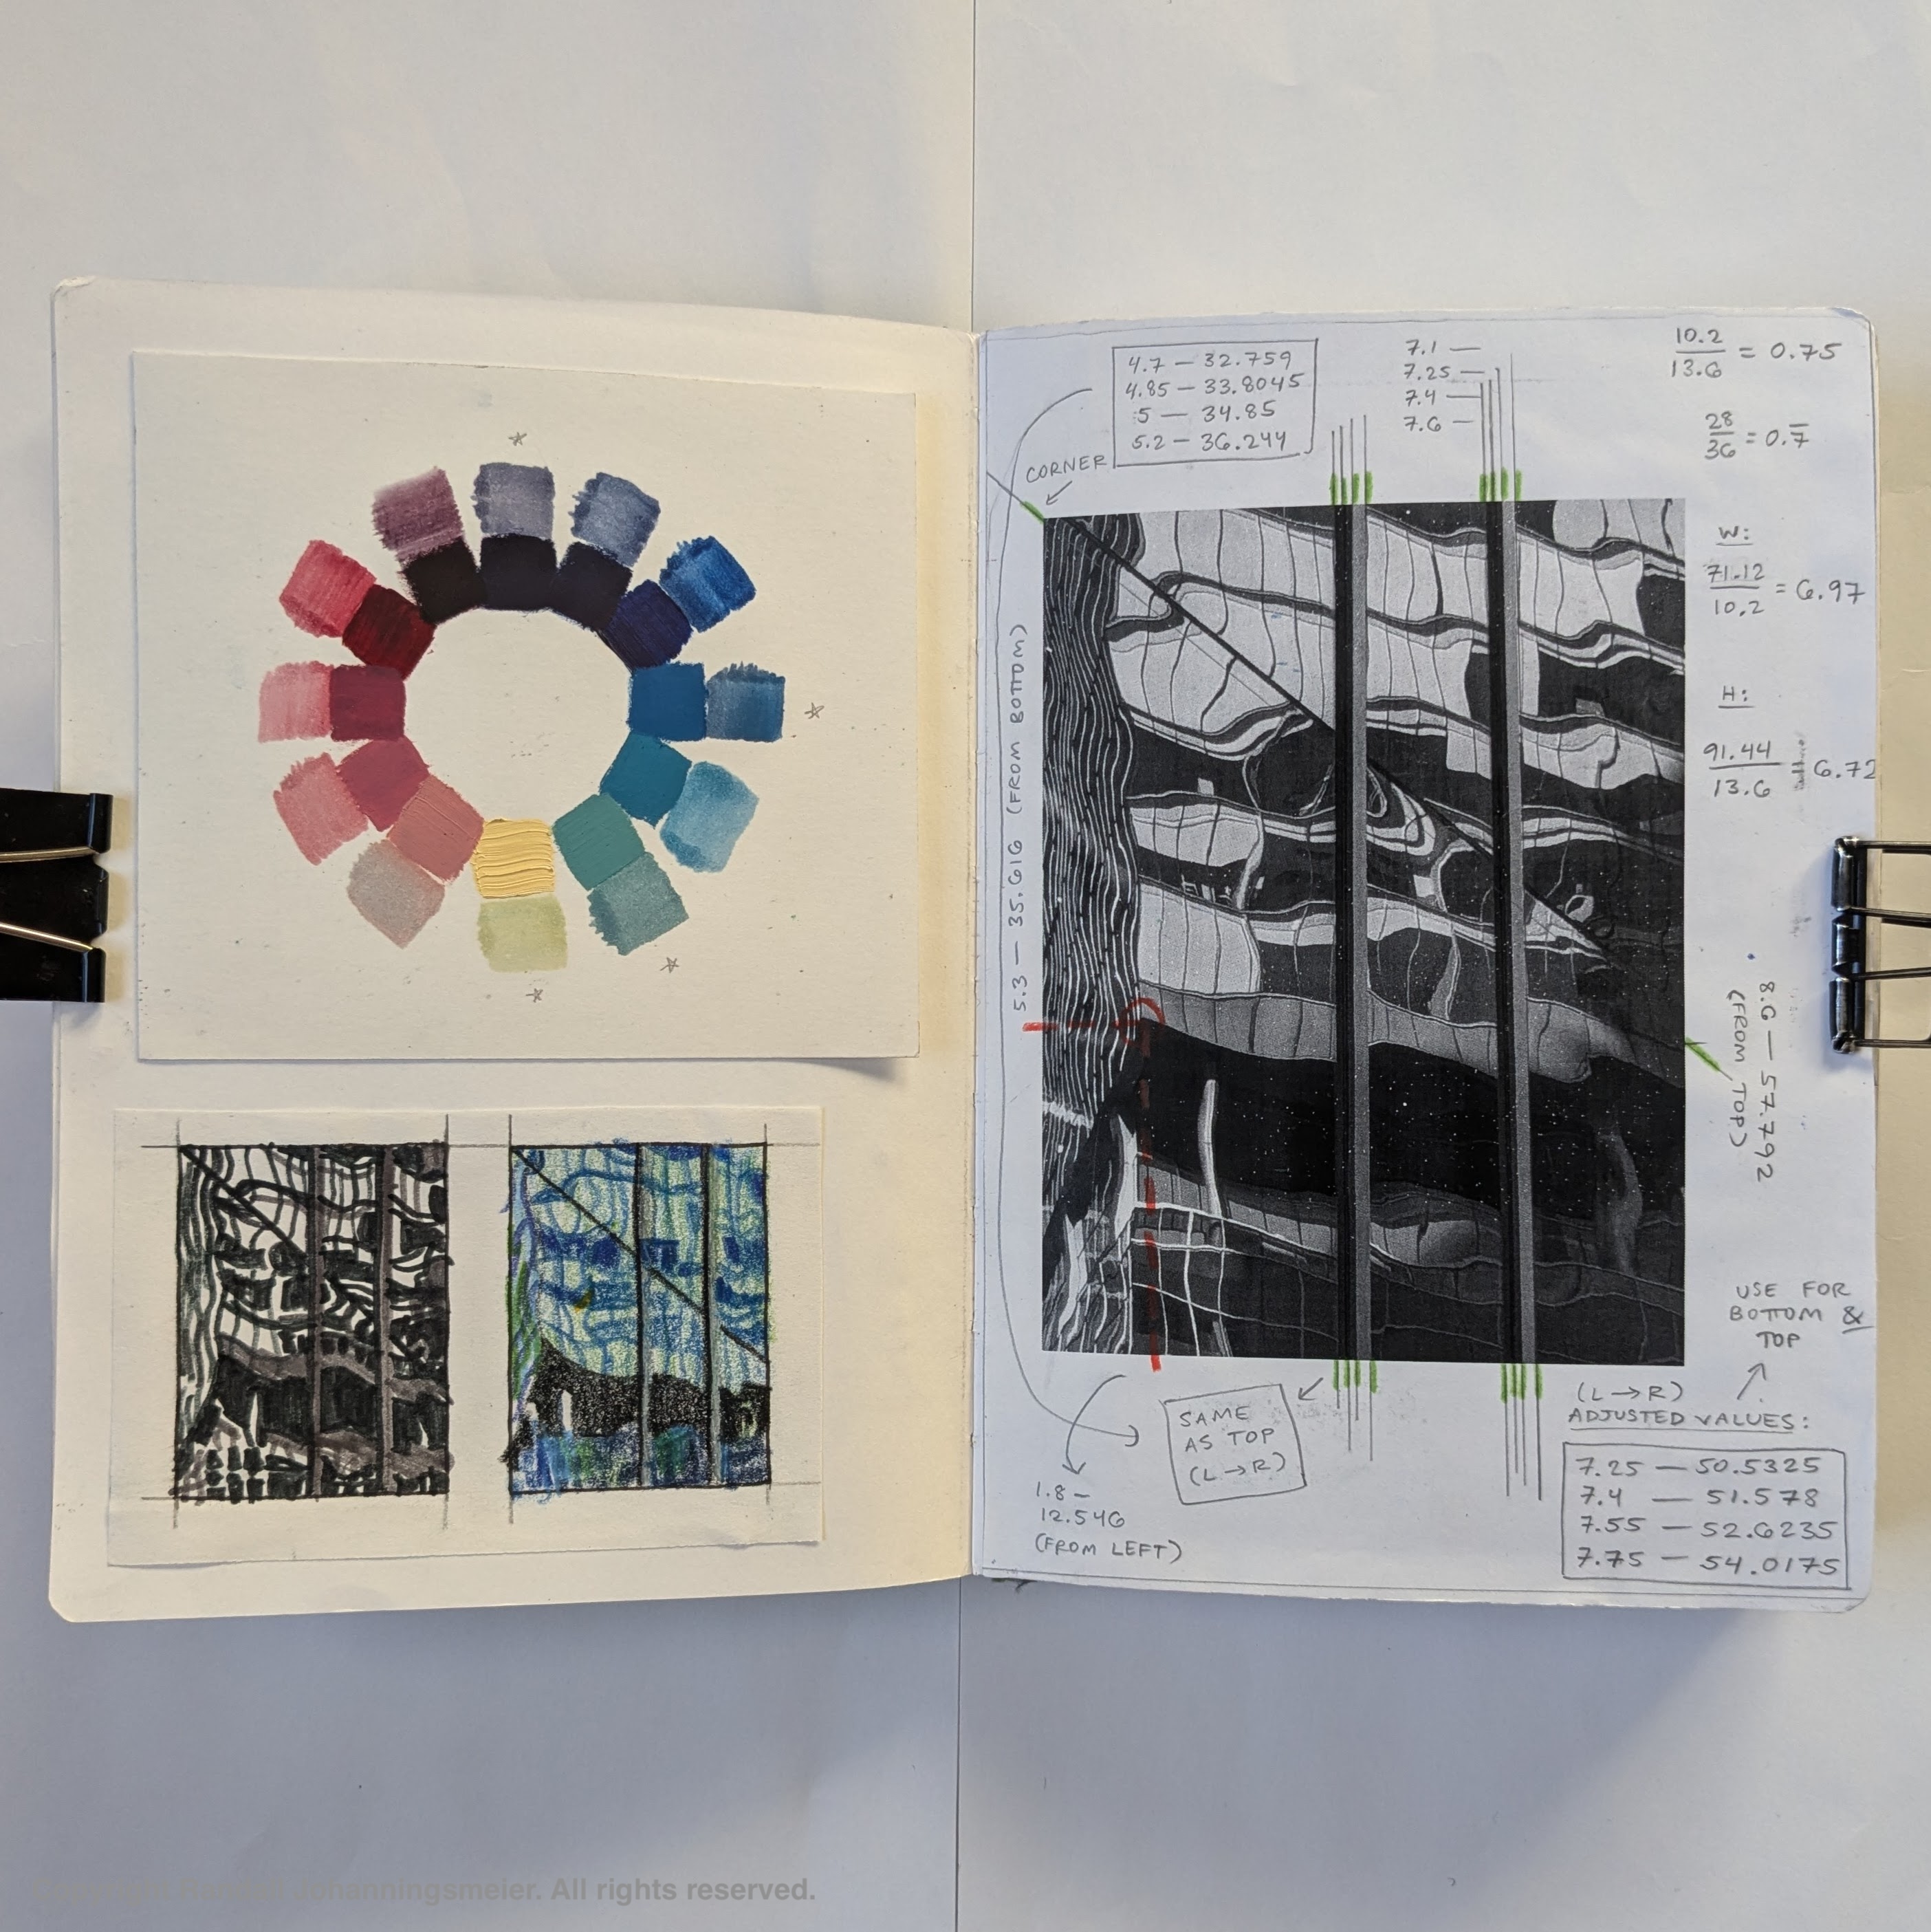 4.7 — 32.759
4.85 — 33.8045
5 — 34.85
5.2 — 36.244
7.1 —
7.25 —
7.4 —
7.6 —
10.2
13.6
= 0.75
28
36
= 0.7̅
CORNER
W:
71.12
10.2
= 6.97
H:
91.44
13.6
= 6.72
5.3 — 35.616 (FROM BOTTOM)
8.6 — 57.792
(FROM TOP)
USE FOR
BOTTOM &
TOP
SAME
AS TOP
(L → R)
(L → R)
ADJUSTED VALUES:
7.25 — 50.5325
7.4 — 51.578
7.55 — 52.6235
7.75 — 54.0175
1.8 —
12.546
(FROM LEFT)
Johanningsmeier. All rights reserved.